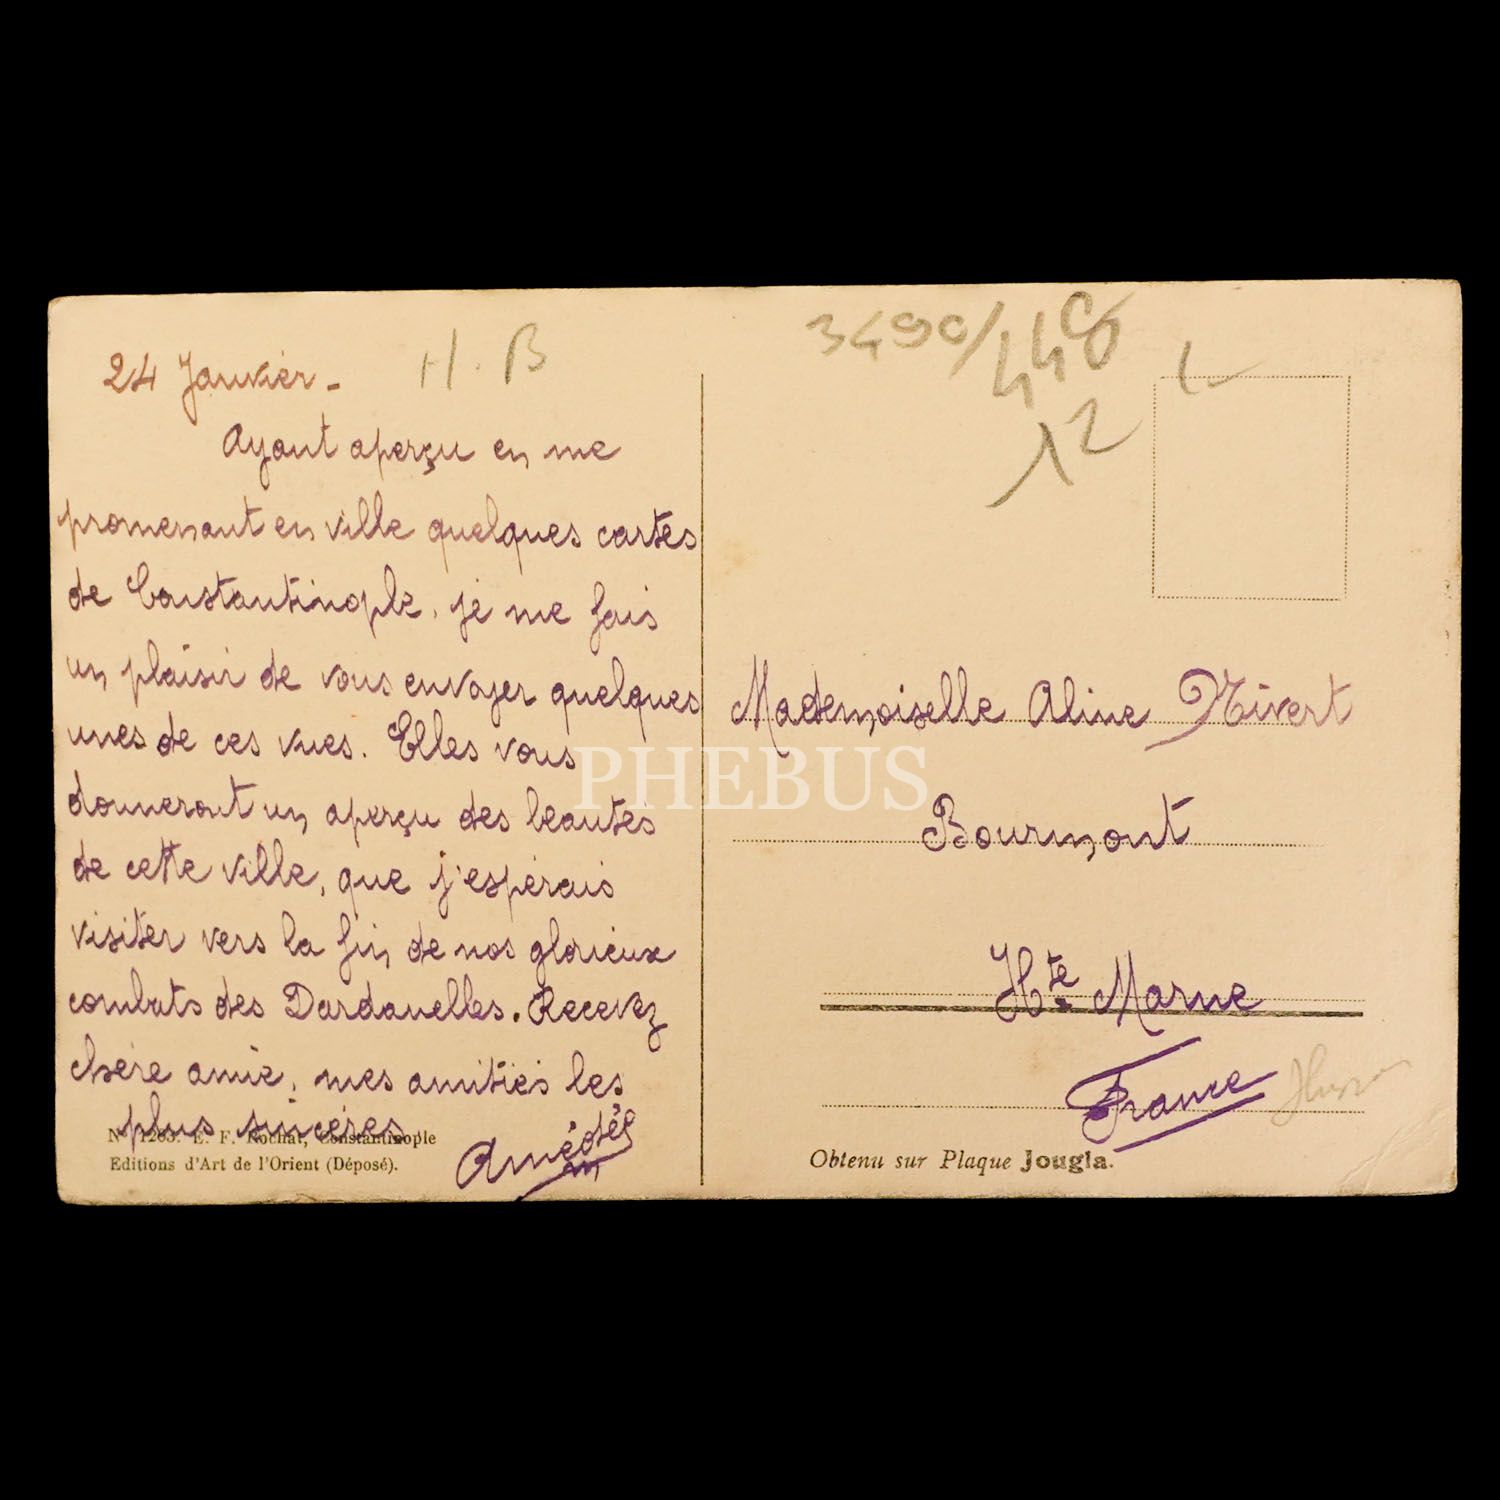 24 Janvier -
H. B
Ayant aperçu en me
promenant en ville quelques cartes
de Constantinople, je me fais
un plaisir de vous envoyer quelques
unes de ces vues. Elles vous
donneront un aperçu des beautés
de cette ville, que j'espérais
visiter vers la fin de nos glorieux
combats des Dardanelles. Recevez
chère amie, mes amitiés les
plus sincères
Amédée
No 1263. E. F. Rochat, Constantinople
Editions d'Art de l'Orient (Déposé).
3490/448
12
Mademoiselle Aline Nivert
Bourmont
Hte Marne
France
Obtenu sur Plaque Jougla.
PHEBUS